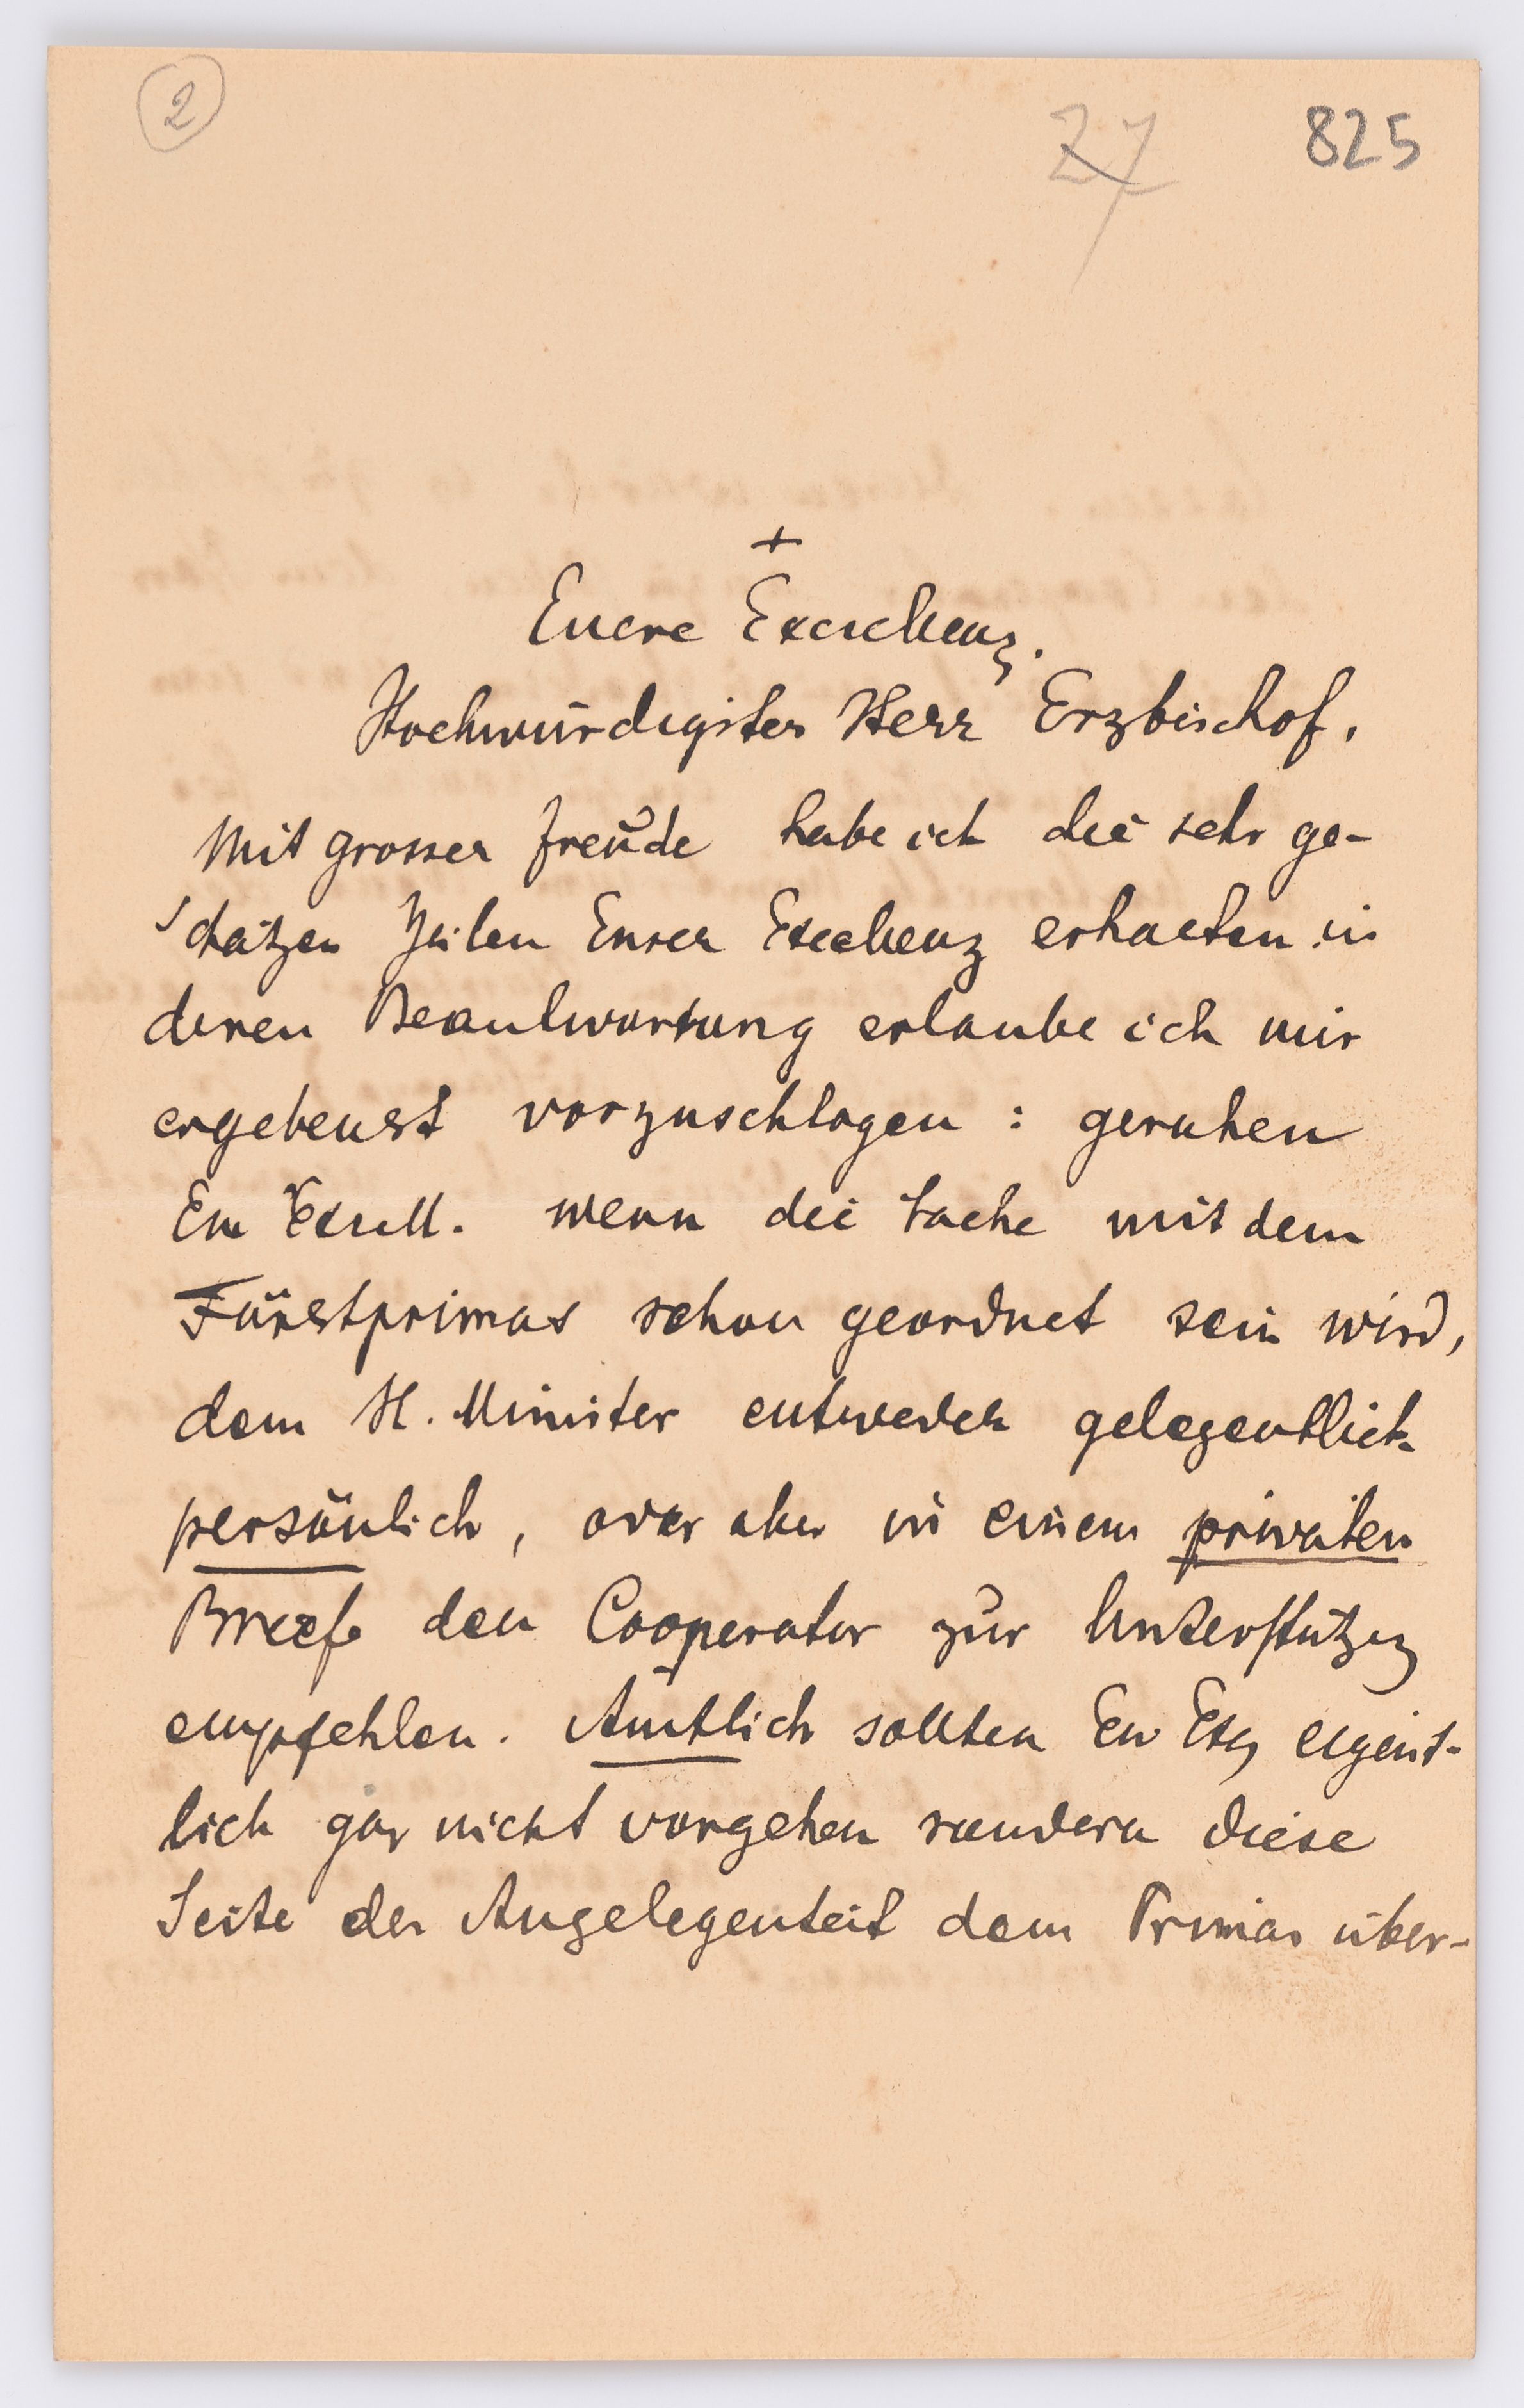 2
27
825
+
Euere Excellenz.
Hochwürdigster Herr Erzbischof.
Mit grosser Freude habe ich die sehr ge-
schätzen Zeilen Eurer Excellenz erhalten in
deren Beantwortung erlaube ich mir
ergebenst vorzuschlagen : geruhen
Ew Excell. wenn die Sache mit dem
Fürstprimas schon geordnet sein wird,
dem H. Minister entweder gelegentlich
persönlich, oder aber in einem privaten
Briefe den Cooperator zur Unterstützg
empfehlen. Amtlich sollten Ew Exz eigent-
lich gar nicht vorgehen sondern diese
Seite der Angelegenheit dem Primas über-